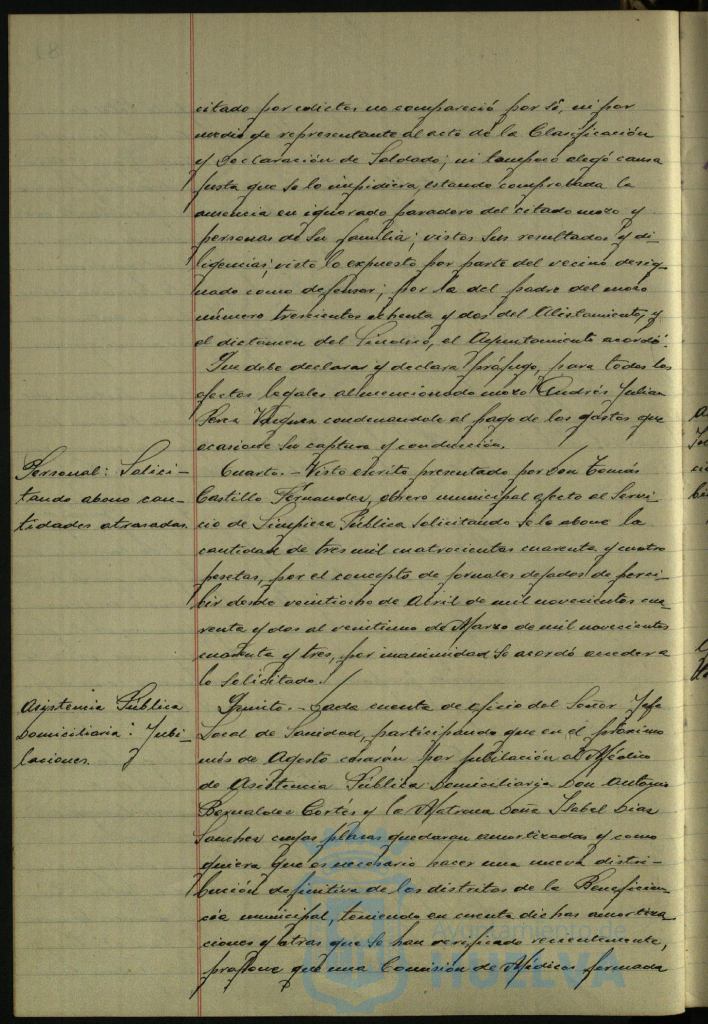 citado por edictos no compareció por sí, ni por
medio de representante al acto de la Clasificación
y Declaración de Soldado; ni tampoco alegó causa
justa que se lo impidiera, estando comprobada la
ausencia en ignorado paradero del citado mozo y
personas de su familia; vistos sus resultados y di-
ligencias; visto lo expuesto por parte del vecino desig-
nado como defensor; por la del padre del mozo
número trescientos ochenta y dos del Alistamiento, y
el dictamen del Síndico, el Ayuntamiento acordó:
Que debe declarar y declara prófugo, para todos los
efectos legales al mencionado mozo Andrés Julian
Perez Vazquez condenandole al pago de los gastos que
ocasione su captura y conducción.
Personal: Solici-
tando abono can-
tidades atrasadas.
Cuarto.- Visto escrito presentado por Don Tomás
Castillo Fernandez, obrero municipal afecto al Servi-
cio de Limpieza Pública solicitando se le abone la
cantidad de tres mil cuatrocientas cuarenta y cuatro
pesetas, por el concepto de jornales dejados de perci-
bir desde veintiocho de Abril de mil novecientos cua-
renta y dos al veintiuno de Marzo de mil novecientos
cuarenta y tres, por unanimidad se acordó acceder a
lo solicitado.
Asistencia Pública
Domiciliaria: Jubi-
laciones.
Quinto.- Dada cuenta de oficio del Señor Jefe
Local de Sanidad, participando que en el próximo
mes de Agosto cesarán por jubilación el Médico
de Asistencia Pública Domiciliaria Don Antonio
Bernaldez Cortés y la Matrona Doña Isabel Diaz
Sanchez cuyas plazas quedaran amortizadas y como
quiera que es necesario hacer una nueva distri-
bución definitiva de los distritos de la Beneficien-
cia municipal, teniendo en cuenta dichas amortiza-
ciones y otras que se han verificado recientemente,
propone que una Comisión de Médicos formada
Ayuntamiento de
HUELVA